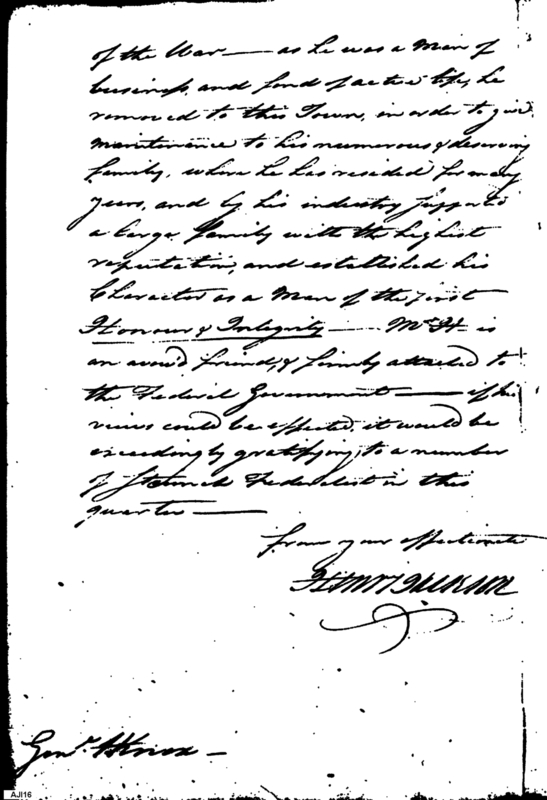 of the War — as he was a Man of
business, and fond of active life, he
removed to this Town, in order to give
maintenance to his numerous & deserving
family, where he has resided for many
years, and by his industry supported
a large family with the highest
reputation, and established his
Character as a Man of the first
Honour & Integrity — Mr H is
an avow'd friend, & firmly attached to
the Federal Government — if his
views could be effected, it would be
exceedingly gratifying to a number
of Staunch Federalist in this
quarter —
from your affectionate
Henry Jackson
Genl. HKnox —
AJI16